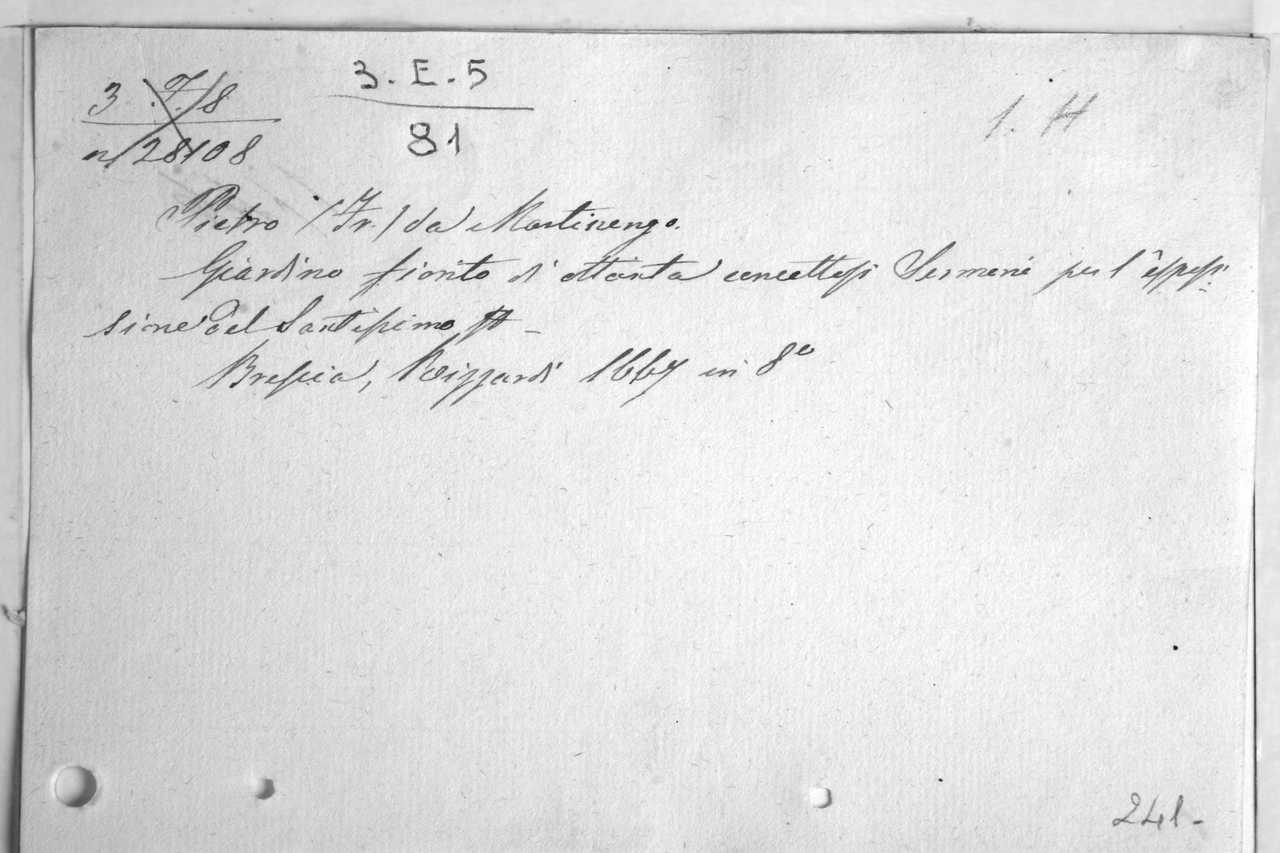 3 . 7/8
n/28108
3. E. 5
81
1. H
Pietro (Fr.) da Martinengo.
Giardino fiorito di ottanta concettosi Sermoni per l'esposi-
sione del Santissimo
Brescia, Rizzardi 1667 in 8°
241-